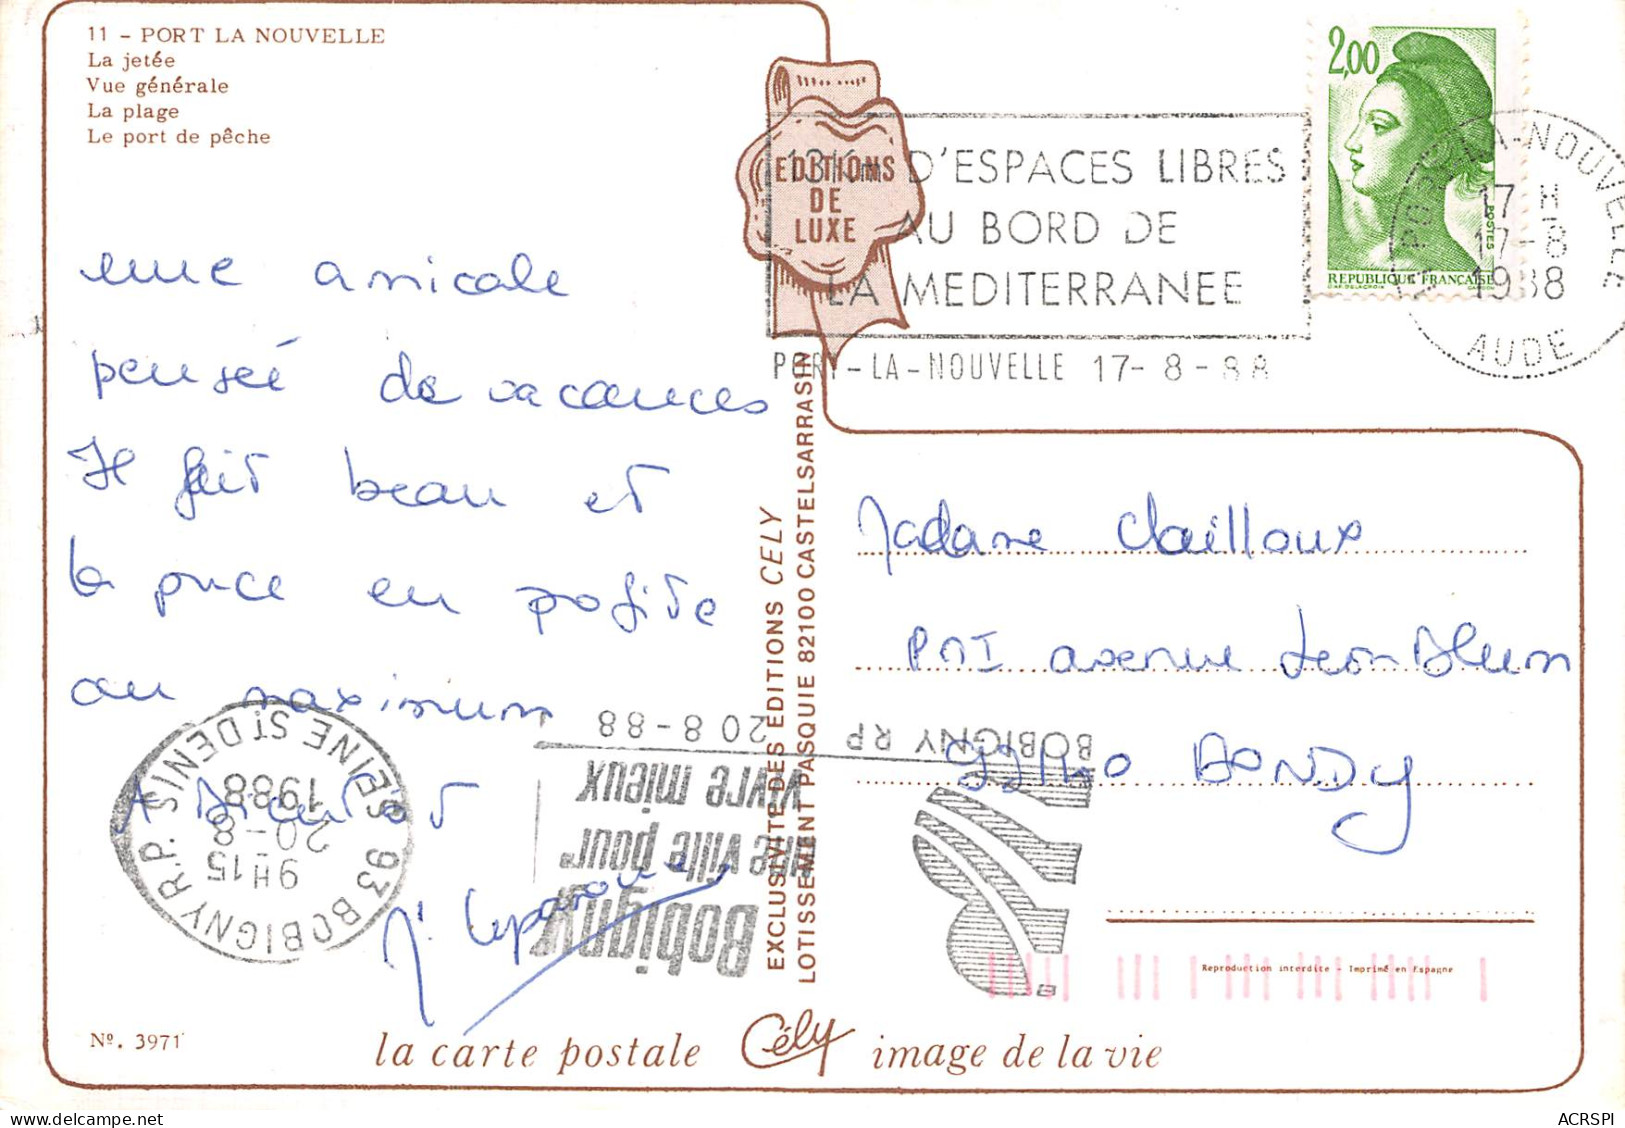 11 - PORT LA NOUVELLE
La jetée
Vue générale
La plage
Le port de pêche
EDITIONS
DE
LUXE
13 Km D'ESPACES LIBRES
AU BORD DE
LA MEDITERRANEE
PORT-LA-NOUVELLE 17-8-88
2,00
POSTES
REPUBLIQUE FRANÇAISE
LA-NOUVELLE
17 H
17-8
1988
AUDE
une amicale
pensée de vacances
Il fait beau et
la puce en profite
au maximum
A Bientôt
Madame Chailloux
avenue Léon Blum
93140 BONDY
EXCLUSIVITE DES EDITIONS CELY
LOTISSEMENT PASQUIE 82100 CASTELSARRASIN
BOBIGNY RP 20 8-88
Bobigny
une ville pour
vivre mieux
93 BOBIGNY R.P. SEINE ST DENIS
9H15
20-8
1988
Reproduction interdite - Imprimé en Espagne
Nº. 3971
la carte postale Cély image de la vie
ACRSPI